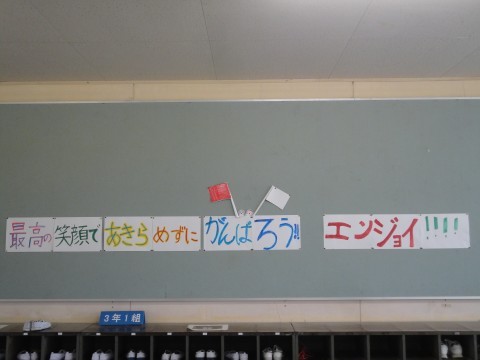 最高の笑顔であきらめずにがんばろう!! エンジョイ!!!!
3年1組